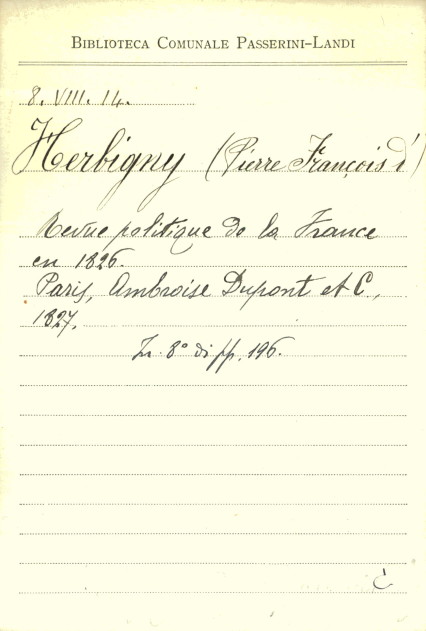 BIBLIOTECA COMUNALE PASSERINI-LANDI
8. VIII. 14.
Herbigny (Pierre François d')
Revue politique de la France
en 1826.
Paris, Ambroise Dupont et C.,
1827.
In 8° di pp. 196.